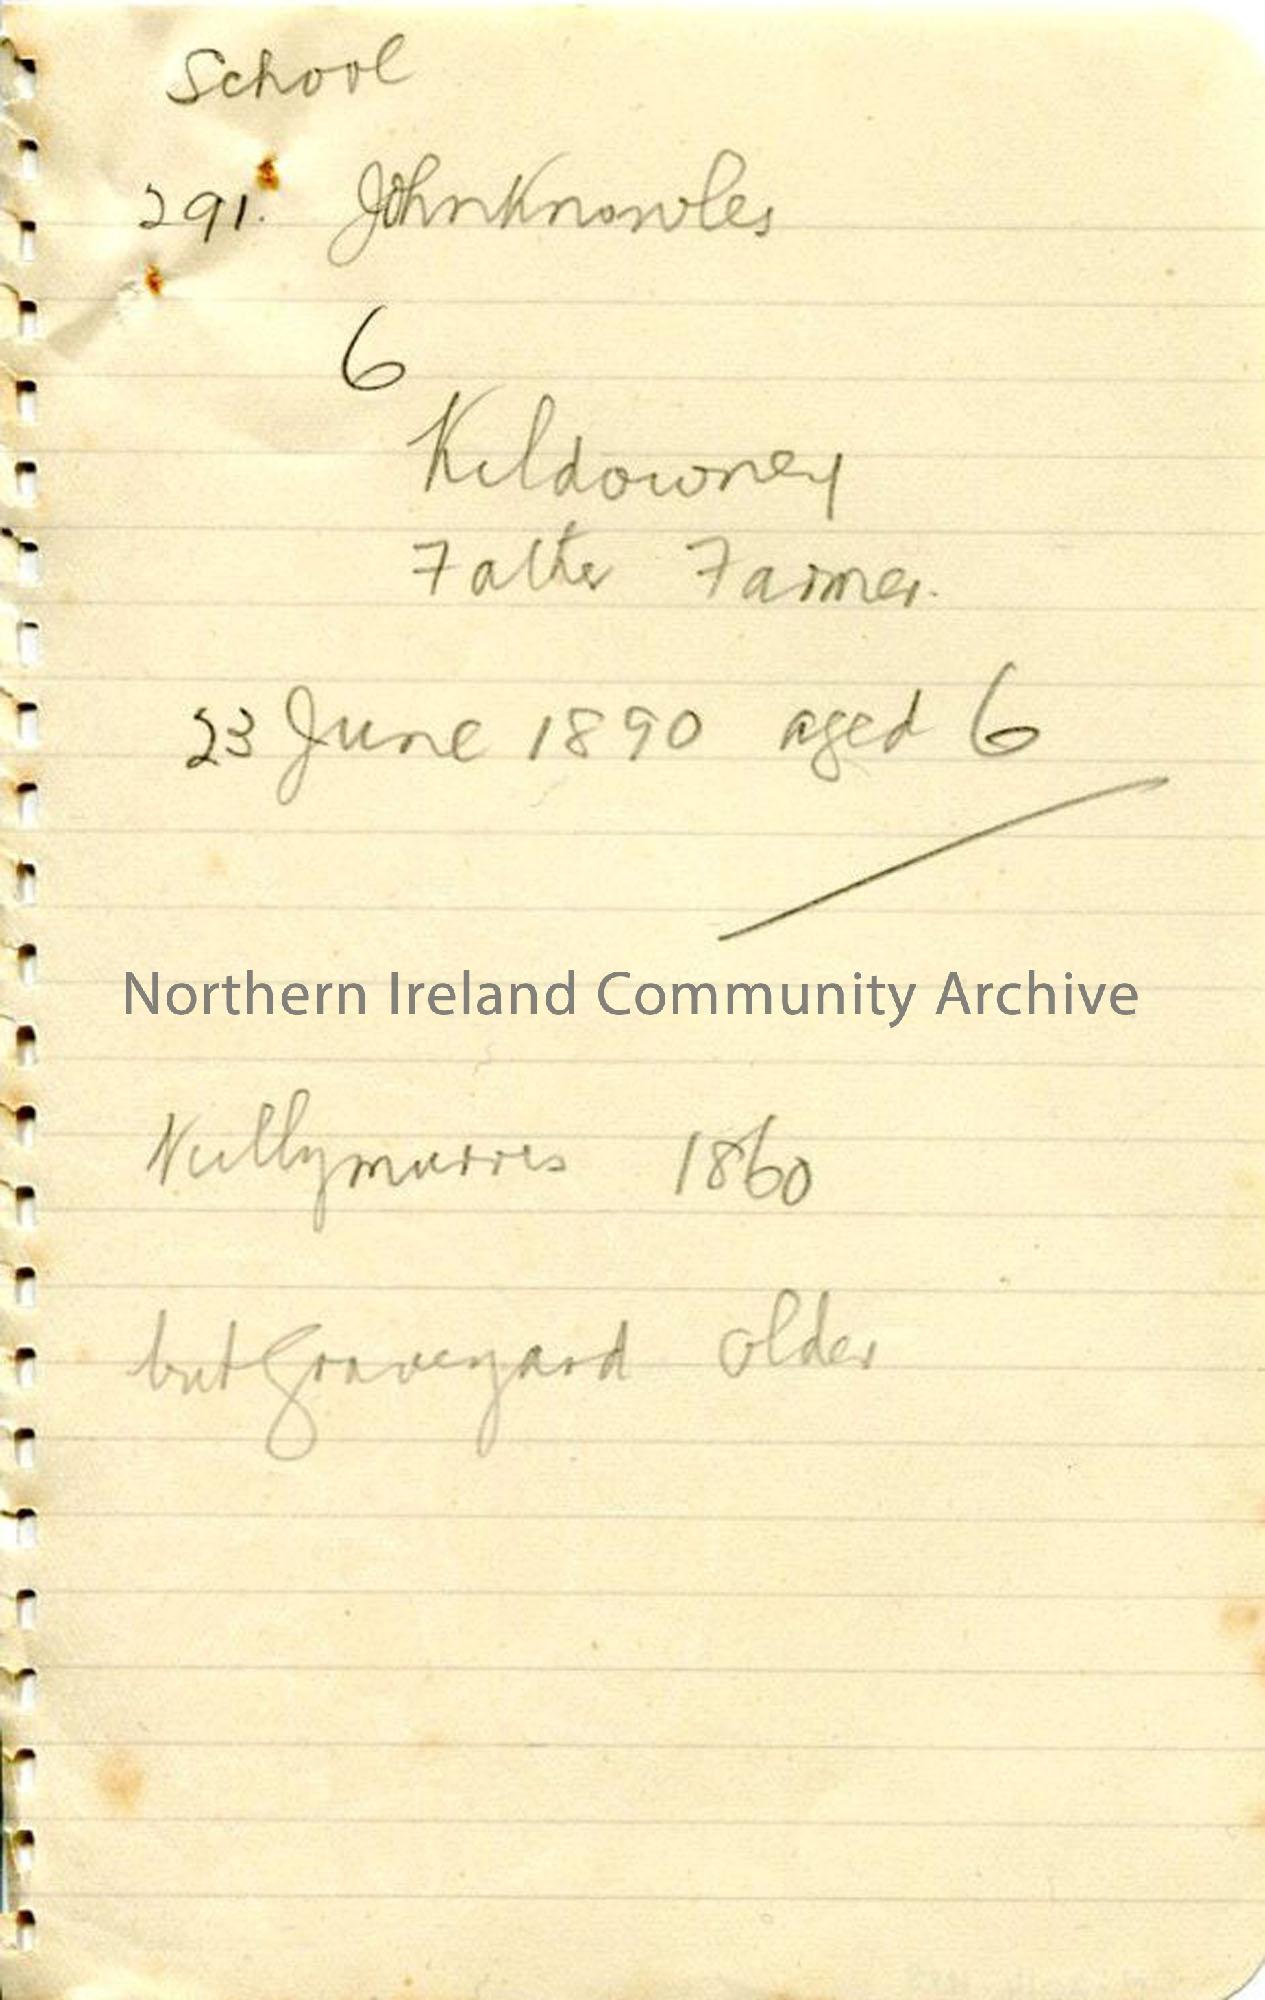 School
291. John Knowles
6
Kildowney
Father Farmer.
23 June 1890 aged 6
Northern Ireland Community Archive
Killymurris 1860
but graveyard older